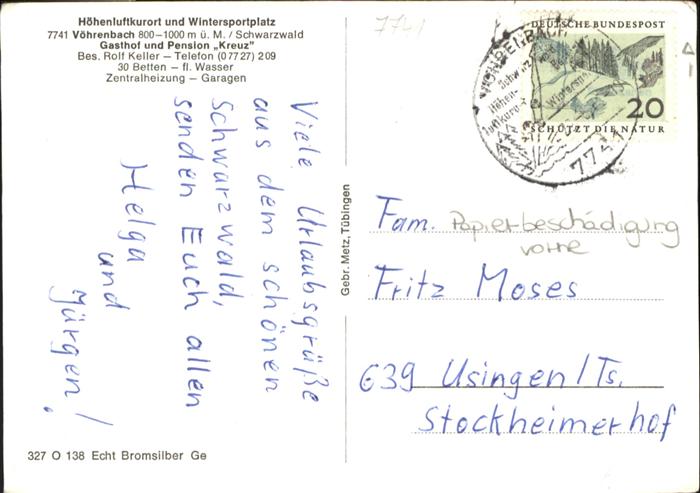 Höhenluftkurort und Wintersportplatz
7741 Vöhrenbach 800–1000 m ü. M. / Schwarzwald
Gasthof und Pension „Kreuz"
Bes. Rolf Keller – Telefon (0 77 27) 209
30 Betten – fl. Wasser
Zentralheizung – Garagen
Viele Urlaubsgrüße
aus dem schönen
Schwarzwald,
senden Euch allen
Helga
und
Jürgen!
327 O 138 Echt Bromsilber Ge
Gebr. Metz, Tübingen
7741
DEUTSCHE BUNDESPOST
20
SCHÜTZT DIE NATUR
VÖHRENBACH
Höhen-
luftkurort
7741
Fam. Papierbeschädigung
vorne
Fritz Moses
639 Usingen/Ts.
Stockheimerhof